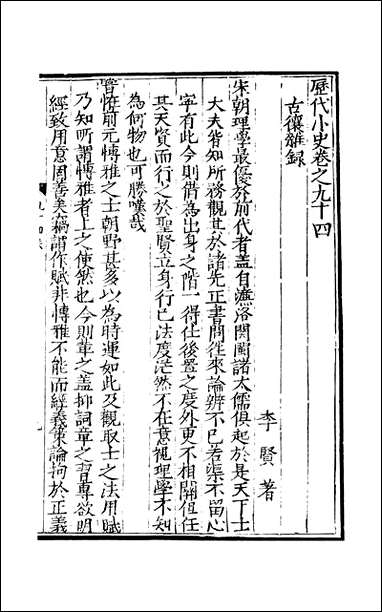 歷代小史卷之九十四
古穰雜錄
李賢著
宋朝理學最優於前代者蓋自濂洛関閩諸大儒俱起於是天下士
大夫皆知所務觀其於諸先正書問往來論辨不已若渠不留心
寧有此今則借為出身之階一得仕後置之度外更不相關但任
其天資而行之於聖賢立身行已法度茫然不在意視理學不知
為何物也可勝嘆哉
嘗恠前元博雅之士朝野甚多以為時運如此及觀取士之法用賦
乃知所謂博雅者上之使然也今則革之蓋抑詞章之習專欲明
經致用意固善矣竊謂作賦非博雅不能而經義策論拘於正義